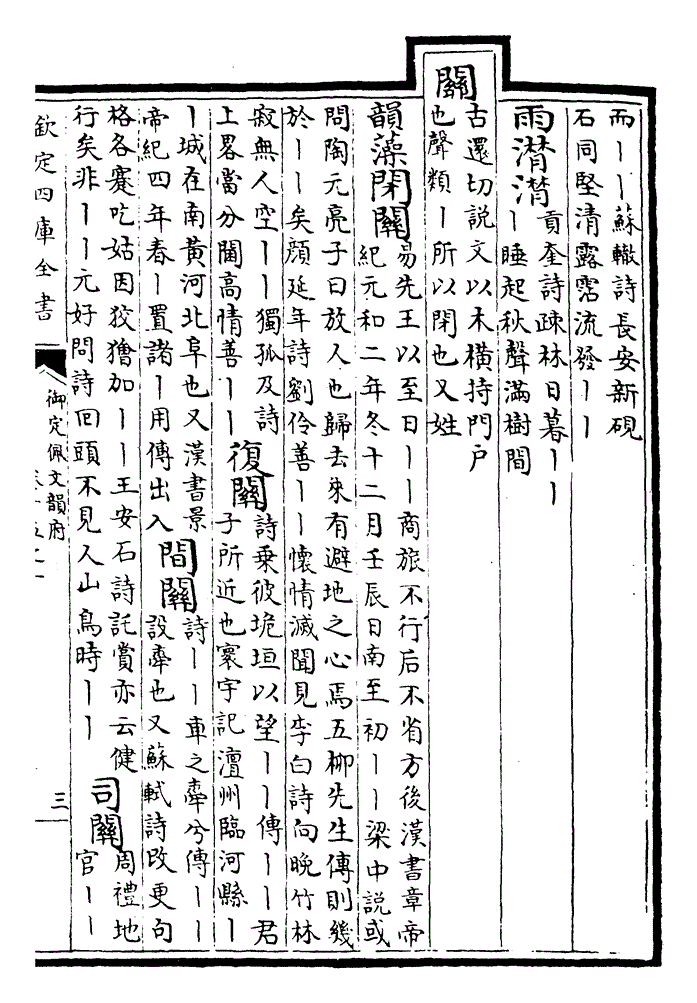 而丨丨蘇轍詩長安新硯
石同堅清露霑流發丨丨
雨潸潸
貢奎詩疎林日暮丨丨
丨睡起秋聲滿樹間
關
古還切説文以木橫持門户
也聲類丨所以閉也又姓
韻藻閉關
易先王以至日丨丨商旅不行后不省方後漢書章帝
紀元和二年冬十二月壬辰日南至初丨丨梁中説或
問陶元亮子曰放人也歸去來有避地之心焉五柳先生傳則幾
於丨丨矣顔延年詩劉伶善丨丨懷情滅聞見李白詩向晚竹林
寂無人空丨丨獨孤及詩
上畧當分閫高情善丨丨
復關
詩乘彼垝垣以望丨丨傳丨丨君
子所近也寰宇記澶州臨河縣丨
丨城在南黄河北阜也又漢書景
帝紀四年春丨置諸丨用傳出入
間關
詩丨丨車之舝兮傳丨丨
設舝也又蘇軾詩改更句
格各蹇吃姑因狡獪加丨丨王安石詩託賞亦云健
行矣非丨丨元好問詩回頭不見人山鳥時丨丨
司關
周禮地
官丨丨
欽定四庫全書
御定佩文韻府
三